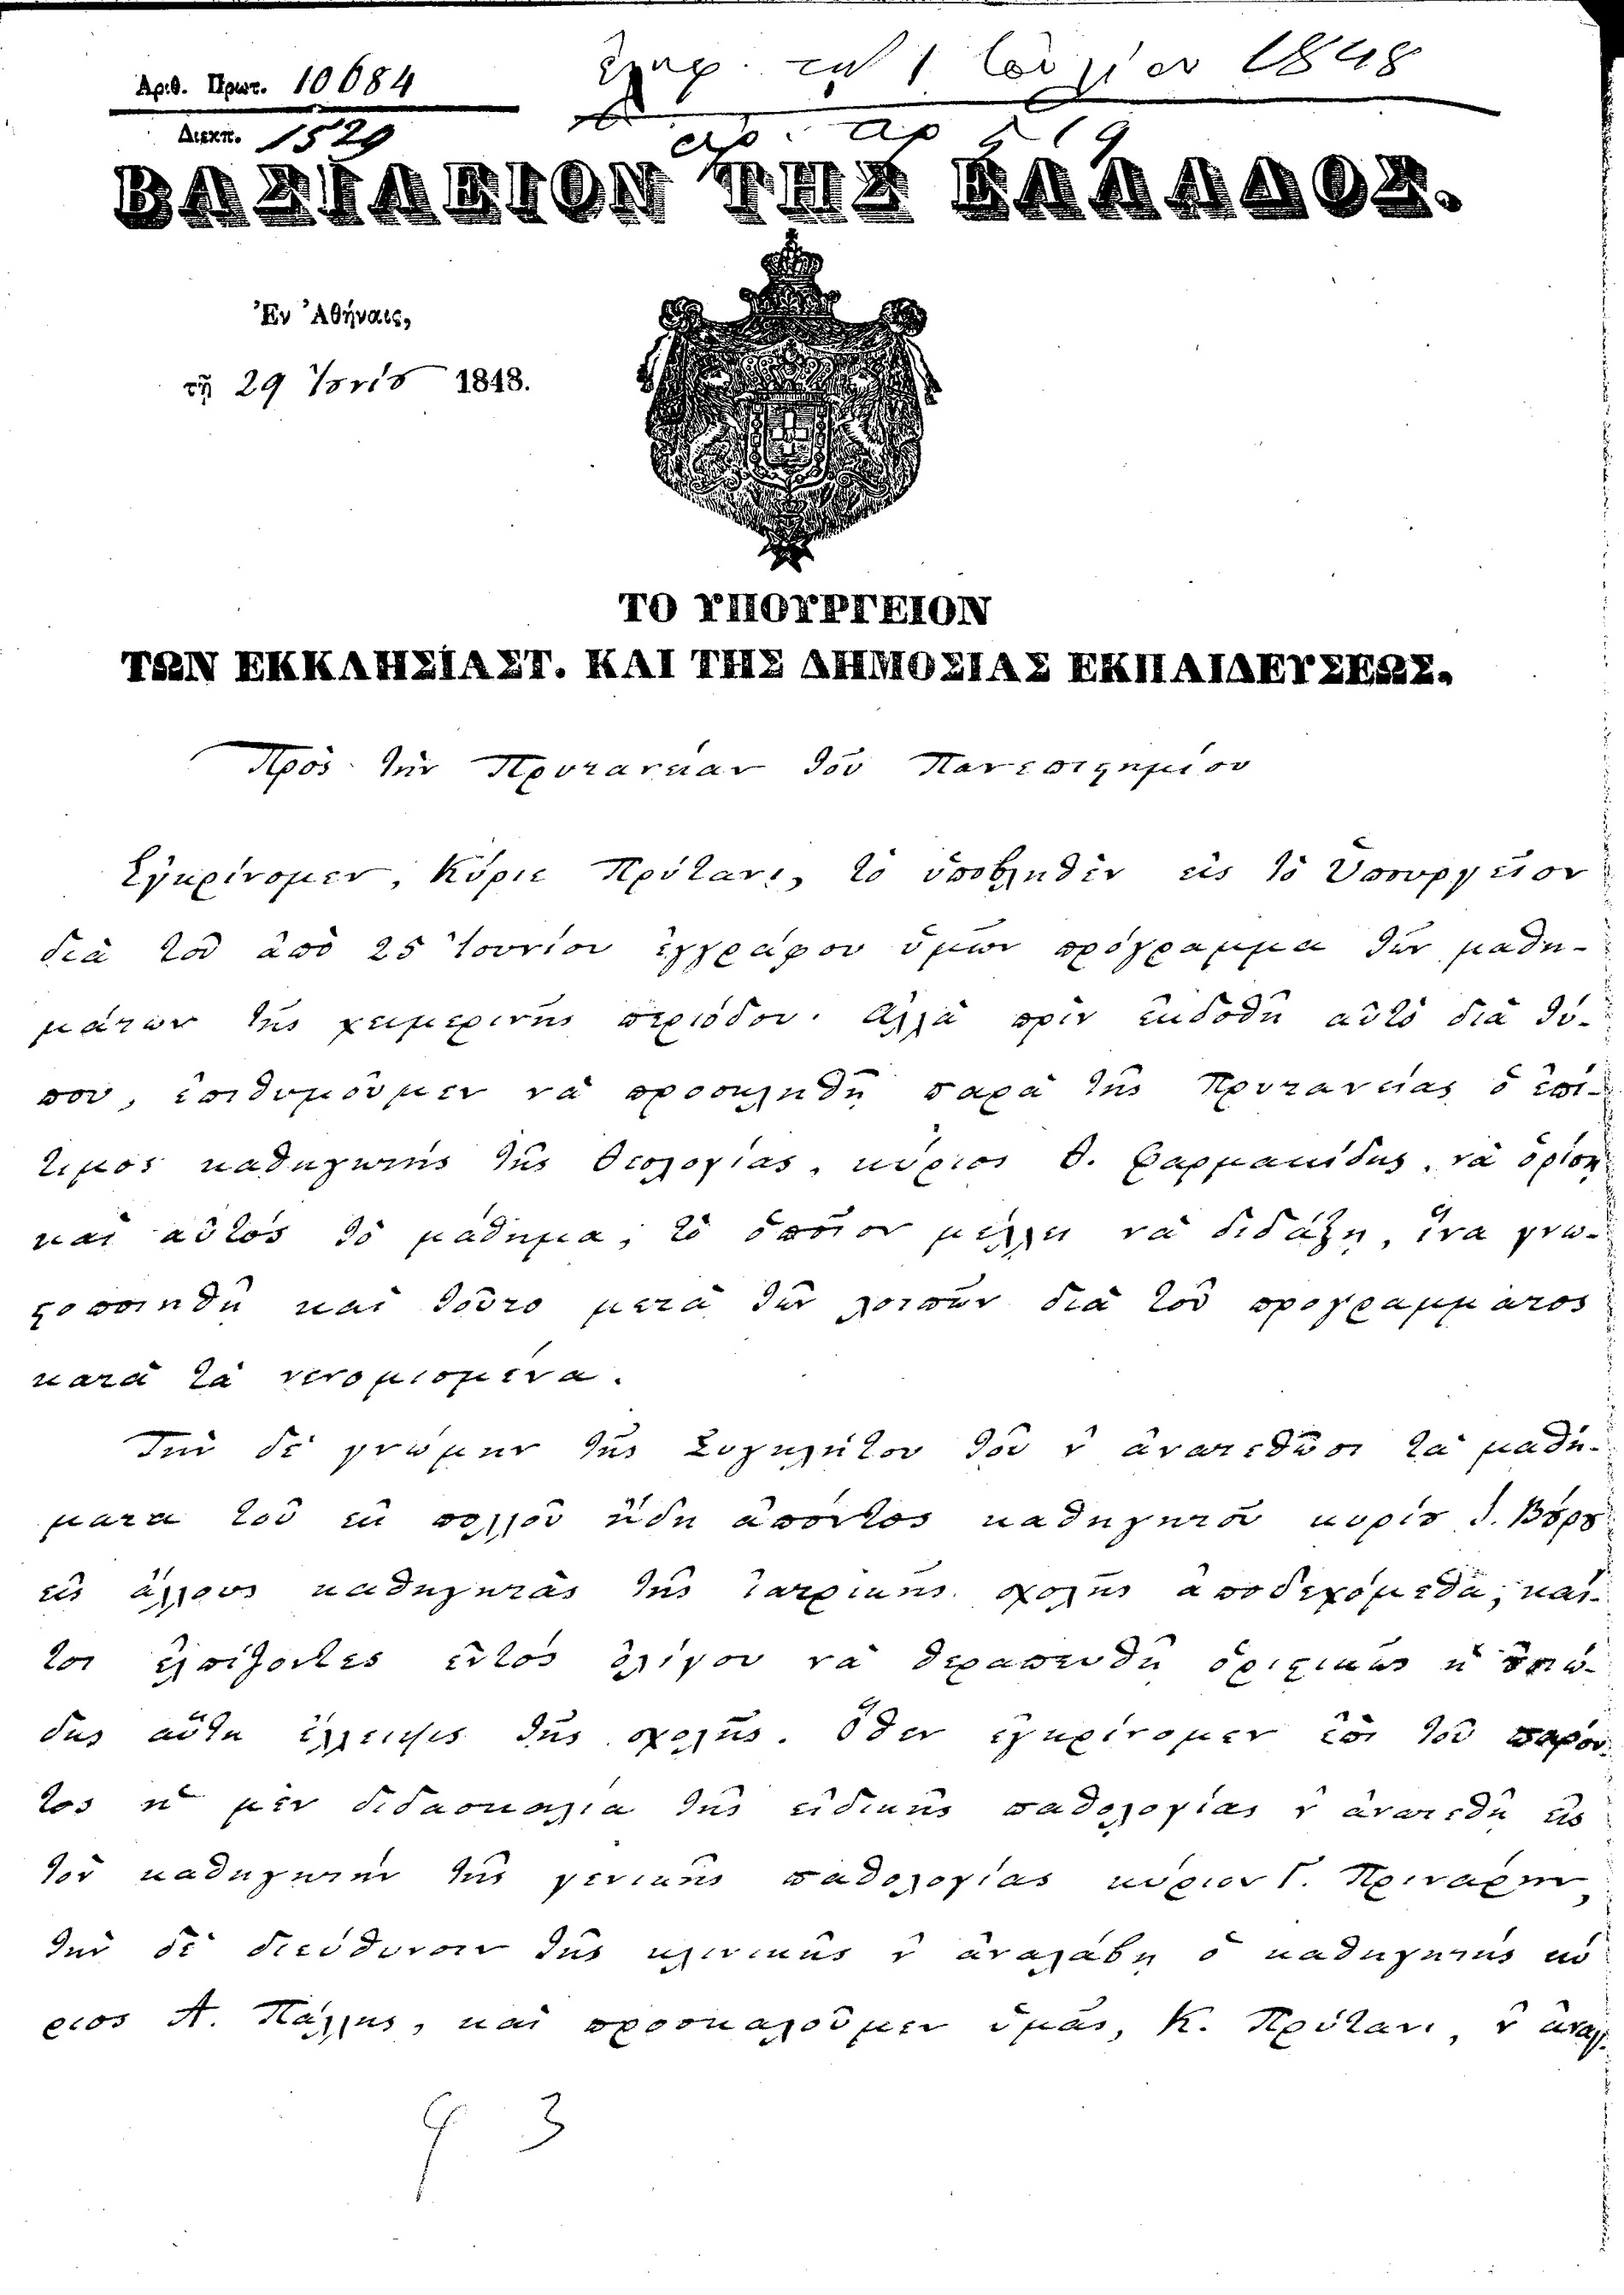 Αριθ. Πρωτ. 10684
ἐλήφ. τῇ 1 Ἰουλίου 1848
Διεκπ. 1529
ἀρ. 519
ΒΑΣΙΛΕΙΟΝ ΤΗΣ ΕΛΛΑΔΟΣ.
Ἐν Ἀθήναις,
τῇ 29 Ἰουνίου 1848.
ΤΟ ΥΠΟΥΡΓΕΙΟΝ
ΤΩΝ ΕΚΚΛΗΣΙΑΣΤ. ΚΑΙ ΤΗΣ ΔΗΜΟΣΙΑΣ ΕΚΠΑΙΔΕΥΣΕΩΣ.
Πρὸς τὴν Πρυτανείαν τοῦ Πανεπιστημίου
Ἐγκρίνομεν, Κύριε Πρύτανι, τὸ ὑποβληθὲν εἰς τὸ Ὑπουργεῖον
διὰ τοῦ ἀπὸ 25 Ἰουνίου ἐγγράφου ὑμῶν πρόγραμμα τῶν μαθη-
μάτων τῆς χειμερινῆς περιόδου. Ἀλλὰ πρὶν ἐκδοθῇ αὐτὸ διὰ τύ-
που, ἐπιθυμοῦμεν νὰ προσκληθῇ παρὰ τῆς Πρυτανείας ὁ ἐπί-
τιμος καθηγητὴς τῆς Θεολογίας, κύριος Θ. Φαρμακίδης, νὰ ὁρίσῃ
καὶ αὐτὸς τὸ μάθημα, τὸ ὁποῖον μέλλει νὰ διδάξῃ, ἵνα γνω-
στοποιηθῇ καὶ τοῦτο μετὰ τῶν λοιπῶν διὰ τοῦ προγράμματος
κατὰ τὰ νενομισμένα.
Τὴν δὲ γνώμην τῆς Συγκλήτου τοῦ ν' ἀνατεθῶσι τὰ μαθή-
ματα τοῦ ἐκ πολλοῦ ἤδη ἀπόντος καθηγητοῦ κυρίου Ἰ. Βούρου
εἰς ἄλλους καθηγητὰς τῆς Ἰατρικῆς σχολῆς ἀποδεχόμεθα, καί-
τοι ἐλπίζοντες ἐντὸς ὀλίγου νὰ θεραπευθῇ ὁριστικῶς ἡ οὐσιώ-
δης αὕτη ἔλλειψις τῆς σχολῆς. Ὅθεν ἐγκρίνομεν ἐπὶ τοῦ παρόν-
τος ἡ μὲν διδασκαλία τῆς εἰδικῆς παθολογίας ν' ἀνατεθῇ εἰς
τὸν καθηγητὴν τῆς γενικῆς παθολογίας κύριον Γ. Πρινάρην,
τὴν δὲ διεύθυνσιν τῆς κλινικῆς ν' ἀναλάβῃ ὁ καθηγητὴς κύ
ριος Α. Πάλλης, καὶ προσκαλοῦμεν ὑμᾶς, Κ. Πρύτανι, ν' ἀναγ-